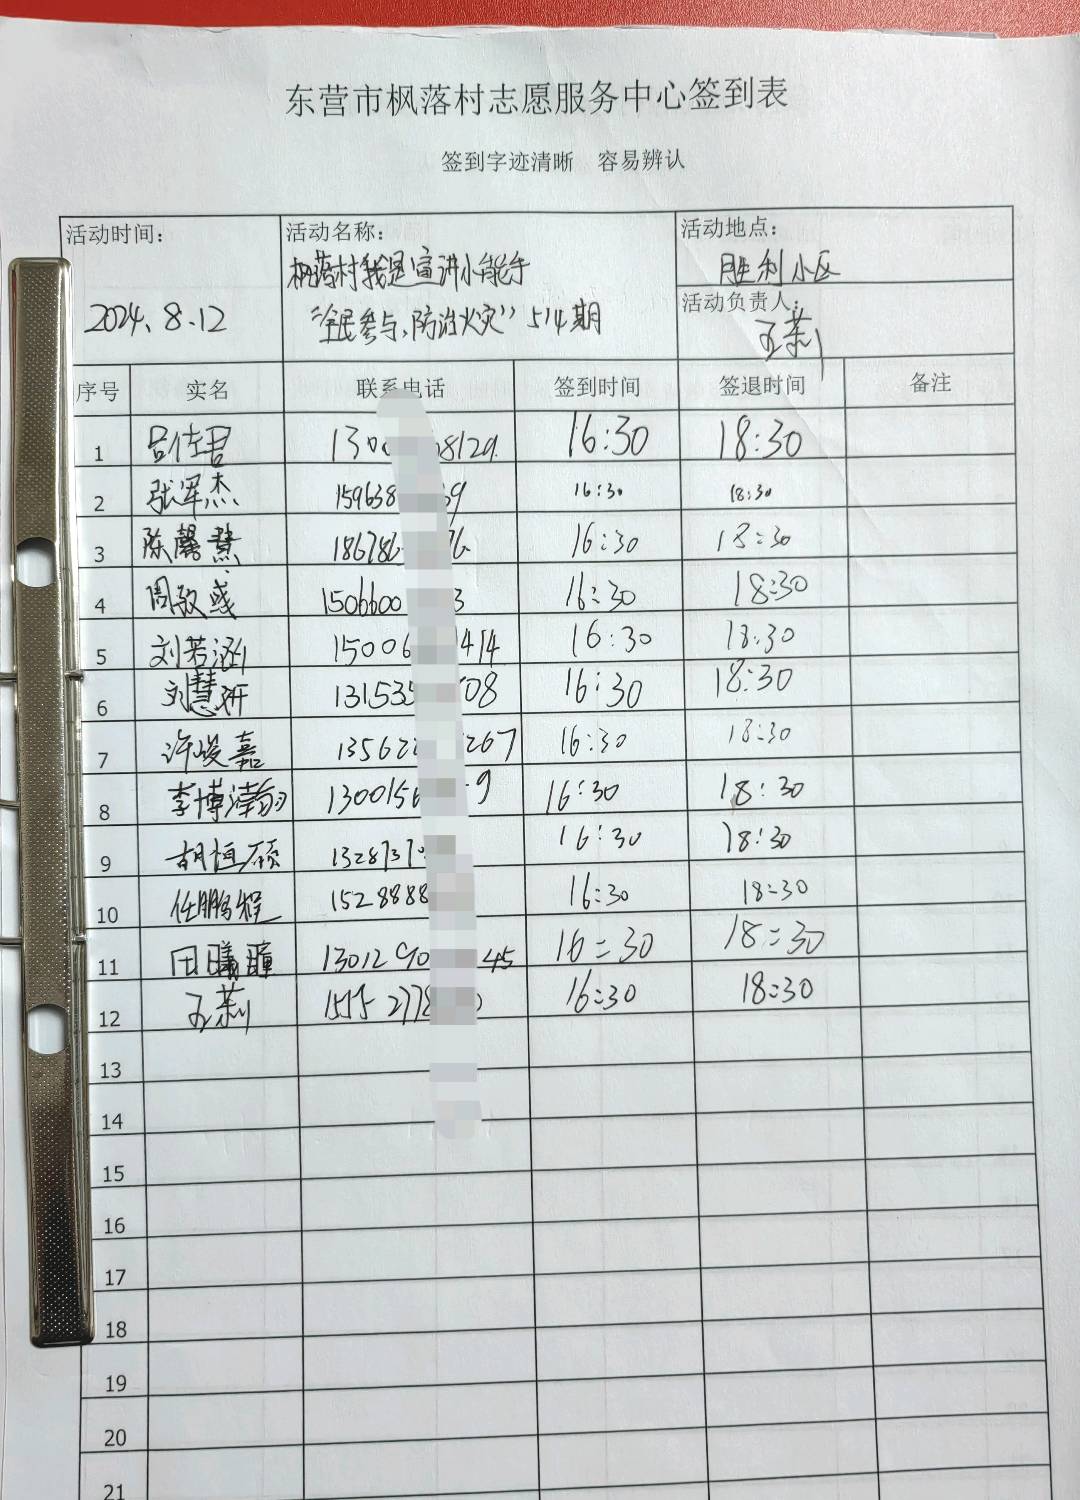 东营市枫落村志愿服务中心签到表
签到字迹清晰 容易辨认
活动时间: 2024.8.12
活动名称: 枫落村我是宣讲小能手
“全民参与,防治火灾” 514期
活动地点: 胜利小区
活动负责人: 王莉
序号 实名 联系电话 签到时间 签退时间 备注
1 吕佳君 130 8129 16:30 18:30
2 张军杰 159638 39 16:30 18:30
3 陈馨慧 186786 76 16:30 18:30
4 周敬彧 1506600 3 16:30 18:30
5 刘若涵 15006 414 16:30 18:30
6 刘慧妍 131535 08 16:30 18:30
7 许峻嘉 13562 267 16:30 18:30
8 李博瀚 130015 9 16:30 18:30
9 胡恒硕 132873 16:30 18:30
10 任鹏程 1528888 16:30 18:30
11 田曦瞳 1301290 45 16:30 18:30
12 王莉 1515 277 16:30 18:30
13
14
15
16
17
18
19
20
21